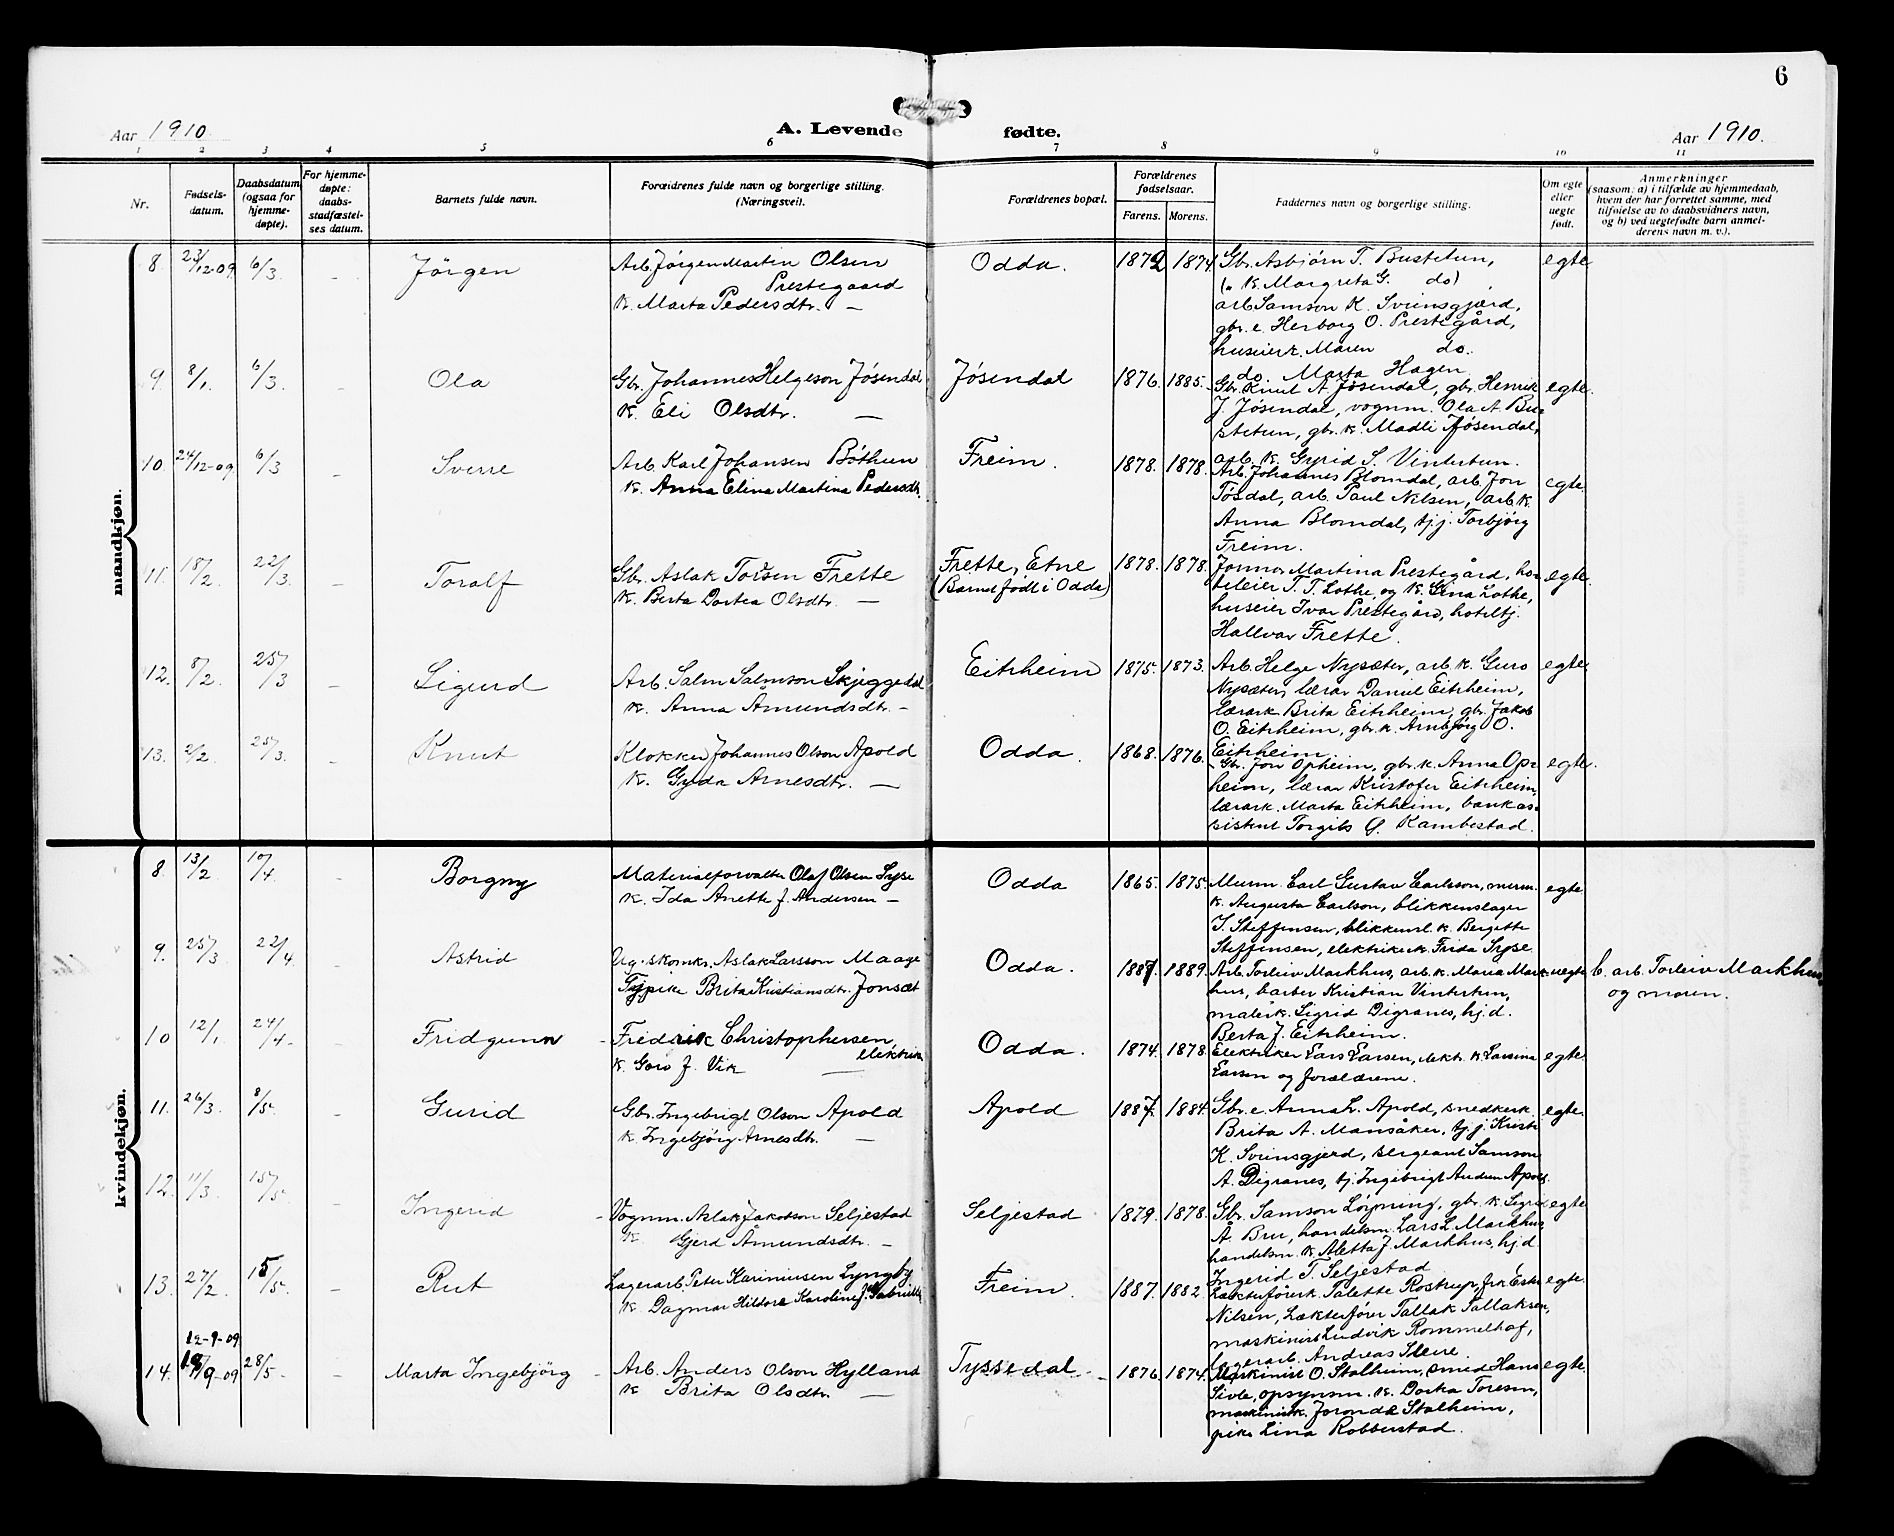 6
Aar 1910. A. Levende fødte. Aar 1910.
1 2 3 4 5 6 7 8 9 10 11
Nr.
Fødsels-
datum.
Daabsdatum
(ogsaa for
hjemme-
døpte).
For hjemme-
døpte:
daabs-
stadfæstel-
ses datum.
Barnets fulde navn.
Forældrenes fulde navn og borgerlige stilling.
(Næringsvei).
Forældrenes bopæl.
Forældrenes
fødselsaar.
Farens. Morens.
Faddernes navn og borgerlige stilling.
Om egte
eller
uegte
født.
Anmerkninger
(saasom: a) i tilfælde av hjemmedaab,
hvem der har forrettet samme, med
tilføielse av to daabsvidners navn,
og b) ved uegtefødte barn anmel-
derens navn m. v.).
mandkjøn.
8. 23/12-09 6/3. - Jörgen
Arb. Jörgen Martin Olsen
Prestegaard
K. Marta Pedersdtr. —
Odda. 1872 1874
Gbr. Asbjørn T. Bustetun,
(" K. Margreta G. do)
arb. Samson K. Svinsgjærd,
gbr. e. Herborg O. Prestegård,
huseierk. Maren do.
do Marta Hagen
egte
9. 8/1. 6/3. - Ola
Gbr. Johannes Helgeson Jøsendal
K. Eli Olsdtr. —
Jøsendal 1876. 1885.
Gbr. Knut A. Jøsendal, gbr. Henrik
J. Jøsendal, vognm. Ola A. Bu-
stetun, gbr. k. Madli Jøsendal,
arb. k. Gyrid S. Vintertun.
egte.
10. 24/12-09 6/3 - Sverre
Arb. Karl Johansen Böthun
K. Anna Elina Martina Pedersdtr.
Freim. 1878. 1878.
Arb. Johannes Blomdal, arb. Jon
Tösdal, arb. Paul Nilsen, arb. k.
Anna Blomdal, tj.j. Torbjörg
Freim.
egte.
11. 18/2. 22/3. - Toralf
Gbr. Aslak Torsen Frette
K. Berta Dortea Olsdtr. —
Frette, Etne
(Barnet født i Odda)
1878. 1878.
Jomfru Martina Prestegård, ho-
teleier T. T. Lothe, og K. Gina Lothe,
huseier Ivar Prestegård, hoteltj.
Hallvar Frette.
egte.
12. 8/2. 25/3 - Sigurd
Arb. Salm Salmson Skjeggedal
K. Anna Åmundsdtr. -
Eitrheim 1875. 1873.
Arb. Helge Nysæter, arb. k. Guro
Nysæter, lærar Daniel Eitrheim,
lærark Brita Eitrheim, gbr. Jakob
O. Eitrheim, gbr. k. Arnbjörg O.
Eitrheim.
egte
13. 2/2. 25/3. - Knut
Klokker Johannes Olson Apold
K. Gyda Arnesdtr. —
Odda. 1868. 1876.
Gbr. Jon Opheim, gbr. k. Anna Op-
heim, lærar Kristofer Eitrheim,
lærark. Marta Eitrheim, bankas-
sistent Torgils Kambestad.
egte.
kvindekjøn.
8. 13/2 10/4. - Borgny
Materialforvalter Olaf Olsen Syse
K. Ida Anette f. Andersen -
Odda 1865. 1875.
Murm. Carl Gustav Carlsson, murm.
k. Augusta Carlson, blikkenslager
J. Steffensen, blikkensl. k. Bergitte
Steffensen, elektrikerk Frida Syse.
egte.
9. 25/3 22/4. - Astrid
Ug. skomkr. Aslak Larsson Maage
Tj.pike Brita Kristiansdtr. Jonsæt
Odda. 1887. 1889.
Arb. Torleiv Markhus, arb. k. Maria Mark-
hus, barber Kristian Vintertun,
malerk. Sigrid Digranes, hj.d.
Berta J. Eitrheim.
uegte
b. arb. Torleiv Markhus
og moren.
10 12/1. 24/4. - Fridgunn
Fredrik Christophersen,
elektriker
K. Goro f. Vik —
Odda. 1874. 1878.
Elektriker Lars Larsen, elektr. k. Larsina
Larsen og forældrene.
egte.
11. 26/3. 8/5. - Gurid
Gbr. Ingebrigt Olson Apold
K. Ingebjörg Arnesdtr. —
Apold 1887. 1884.
Gbr. e. Anna L. Apold, snedkerk.
Brita A. Mansåker, tj.j. Kristi
K. Svinsgjerd, sergeant Samson
A. Digranes, tj. Ingebrigt Apold.
egte.
12. 11/3. 15/5. - Ingerid
Vognm. Aslak Jakobson Seljestad
K. Gjerd Åmundsdtr. -
Seljestad 1879. 1878.
Gbr. Samson Løpning, gbr. k. Sigrid
Å. Bru, handelsm. Lars L. Markhus
handelsm. k. Aletta J. Markhus, hj.d.
Ingerid T. Seljestad
egte
13. 27/2. 15/5. - Rut
Lagerarb. Peter Kariniusen Lyngby
K. Dagmar Hildora Karoline f.
Freim. 1887. 1882.
Lækterførerk. Talette Rostrup, frk
Nilsen, Lækterfører Tallak Tallaksen,
maskinist Ludvik Rommelhof,
lagerarb. Andreas
egte.
12-9-09
14. 19/9-09 28/5. - Marta Ingebjörg -
Arb. Anders Olson Hylland
K Brita Olsdtr. —
Tyssedal 1876. 1874.
Maskinist O. Stalheim, smed Hans
Sivle, opsynsm. k. Dorka Toresen,
maskinistk. Stalheim,
pike Lina Robberstad.
egte.